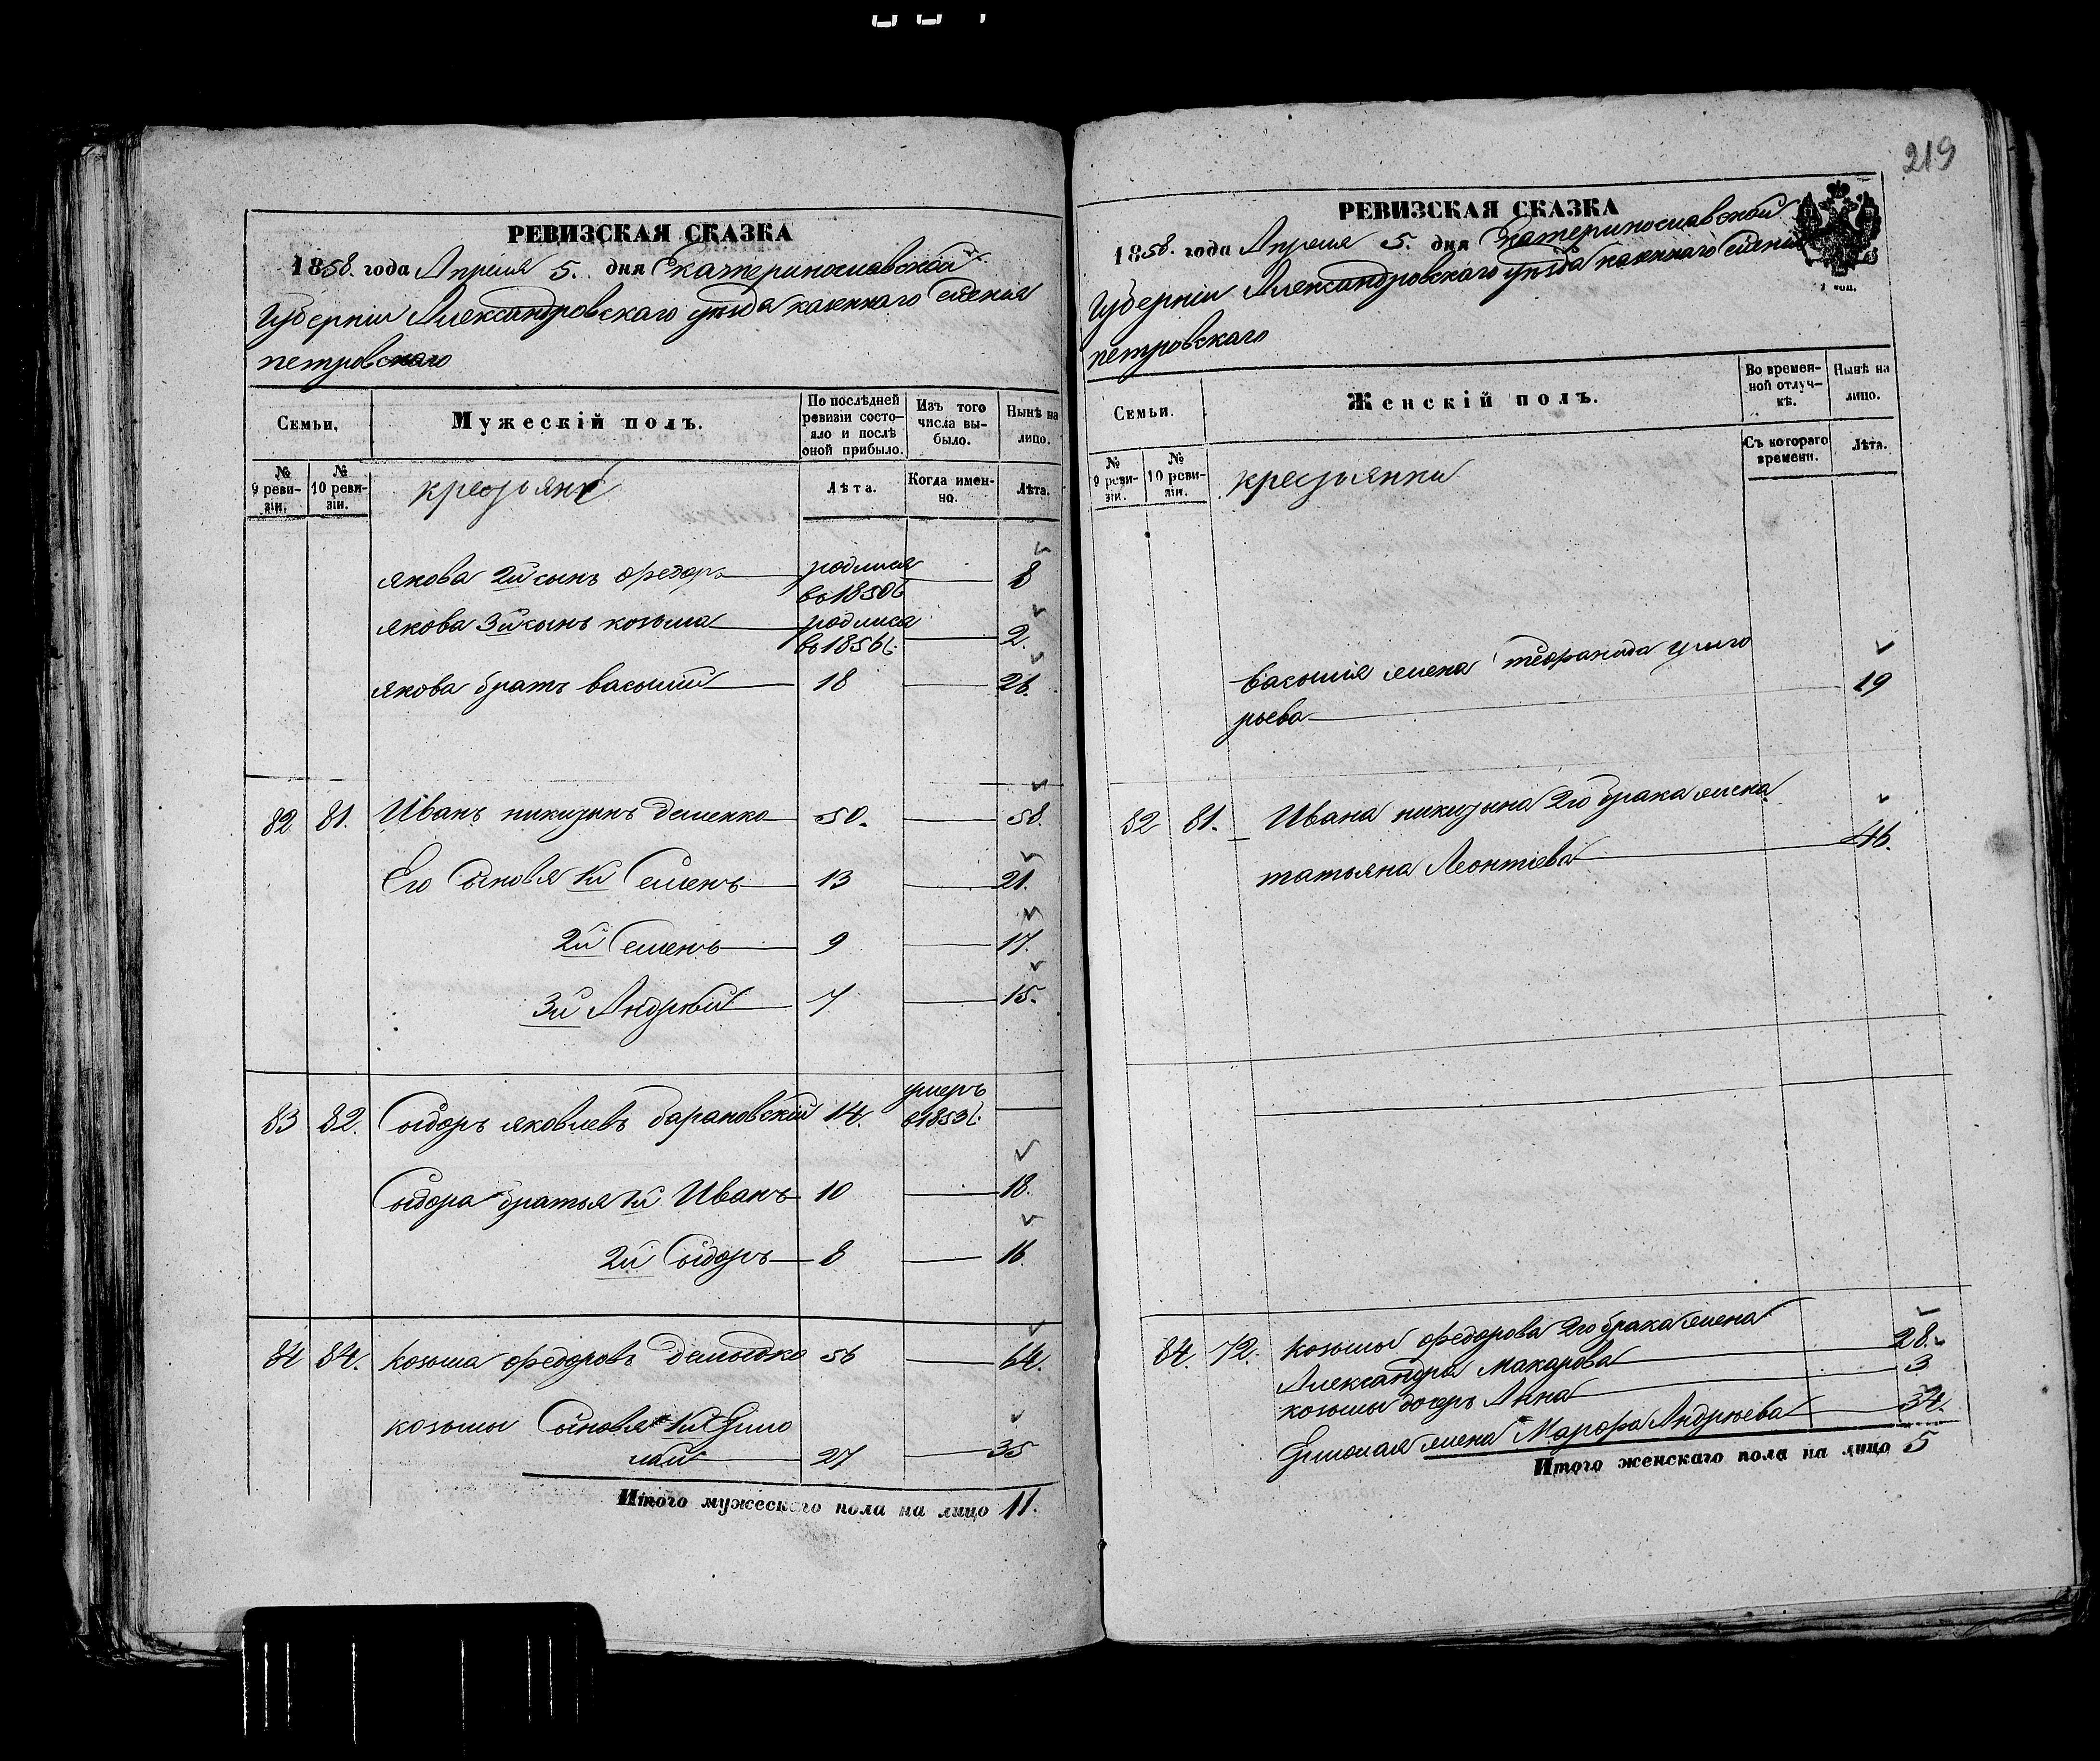 219
РЕВИЗСКАЯ СКАЗКА
1858. года Апреля 5. дня Екатеринославской
Губерніи Александровскаго уѣзда казеннаго селенія
петровскаго
Семьи,
Мужескій полъ.
По послѣдней ревизіи состояло и послѣ оной прибыло.
Изъ того числа выбыло.
Нынѣ на лицо.
№ 9 ревизіи.
№ 10 ревизіи.
крестьяне
Лѣта.
Когда именно.
Лѣта.
якова 2й сынъ федоръ родился 8
во 1850 г
якова 3й сынъ козьма родился 2.
во 1856 г.
якова братъ василий 18 26.
82 81. Иванъ никитинъ деменко 50. 58.
Его Сыновья 1й Семенъ 13 21.
2й Семенъ 9 17.
3й Андрѣй 7 15.
умеръ
83 82. Сидоръ яковлевъ барановскій 14. в 1853 г.
Сидора братья 1й Иванъ 10 18.
2й Сидоръ 8 16
84 84. козьма федоровъ демидко 56 64.
козьмы Сыновья 1й Ермо
лай 27 35
Итого мужескаго пола на лицо 11.
РЕВИЗСКАЯ СКАЗКА
1858. года Апреля 5. дня Екатеринославской
Губерніи Александровскаго уѣзда казеннаго селенія
петровскаго
Семьи.
Женскій полъ.
Во временной отлучкѣ.
Нынѣ на лицо.
№ 9 ревизіи.
№ 10 ревизіи.
крестьянки
Съ котораго времени.
Лѣта.
василия жена григо
рьева 19
82 81. Ивана никитина 2го брака жена
татьяна Леонтіева 46.
84. 72. козьмы федорова 2го брака жена
Александра макарова 28.
козьмы дочерь Анна 3
Ермолая жена Марфа Андреева 34.
Итого женскаго пола на лицо 5